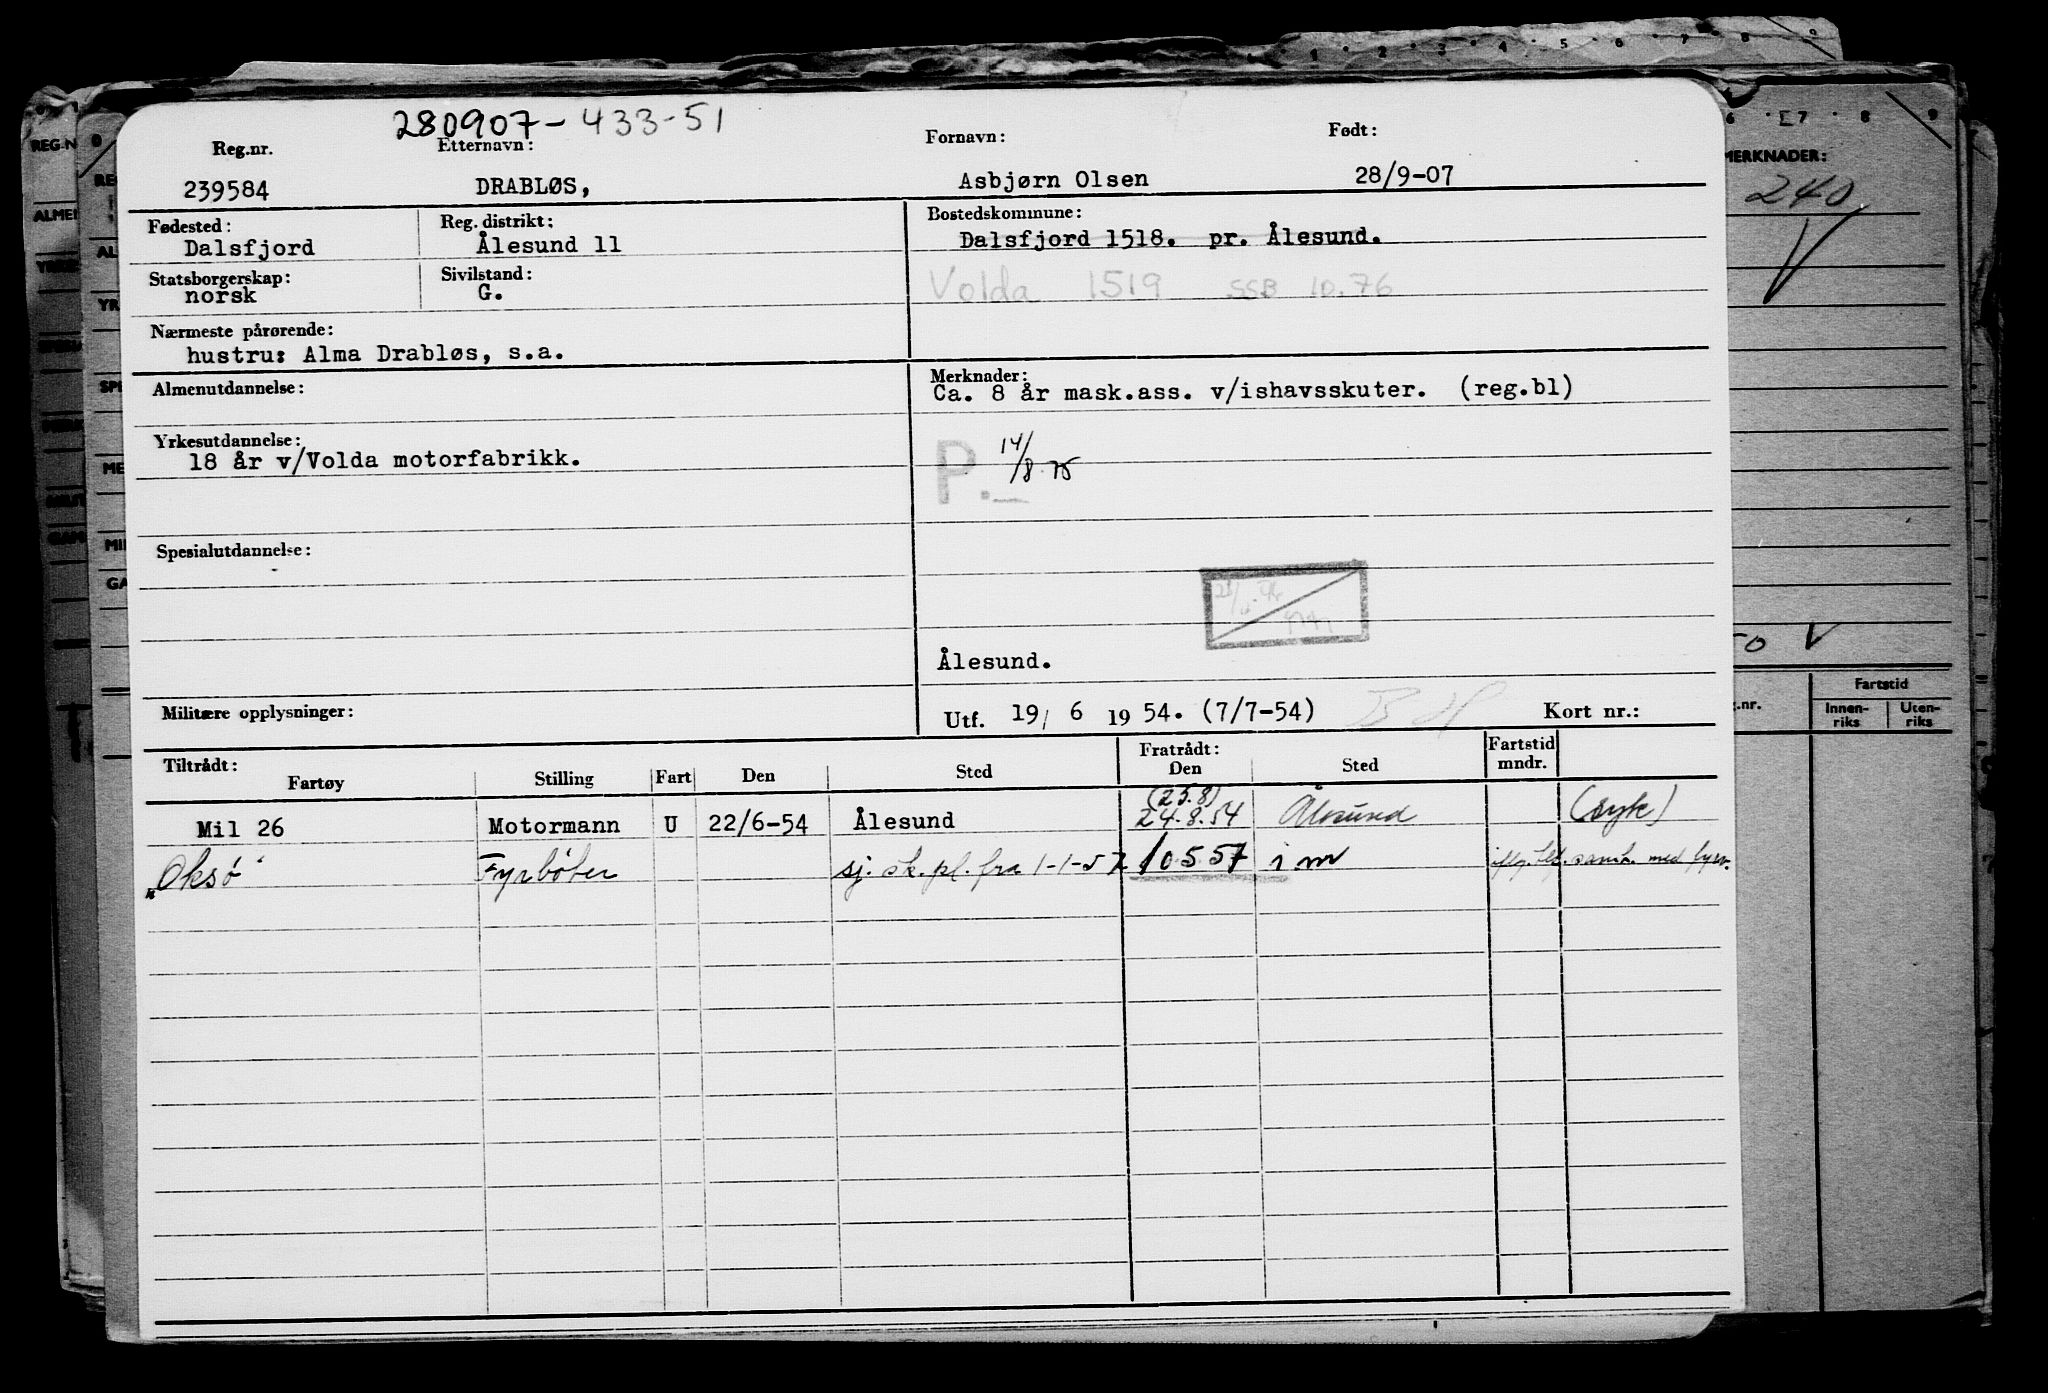 280907-433-51
Reg.nr. Etternavn: Fornavn: Født:
239584 DRABLØS, Asbjørn Olsen 28/9-07
Fødested: Reg. distrikt: Bostedskommune:
Dalsfjord Ålesund 11 Dalsfjord 1518. pr. Ålesund.
Statsborgerskap: Sivilstand:
norsk G. Volda 1519 SSB 10.76
Nærmeste pårørende:
hustru: Alma Drabløs, s.a.
Almenutdannelse: Merknader:
Ca. 8 år mask.ass. v/ishavsskuter. (reg.bl)
Yrkesutdannelse:
18 år v/Volda motorfabrikk.
P. 14/8.75
Spesialutdannelse:
Ålesund.
Militære opplysninger: Utf. 19/ 6 1954. (7/7-54) Kort nr.:
Tiltrådt: Fratrådt: Fartstid
Fartøy Stilling Fart Den Sted Den Sted mndr.
(25.8)
Mil 26 Motormann U 22/6-54 Ålesund 24.8.54 Ålesund (syk)
"Oksø" Fyrbøter sj. sk. pl. fra 1-1-57 10.5.57 i m med
REG.N
ALMEN
YRKE
GAM
MERKNADER:
240
Fartstid
Innen-riks Uten-riks